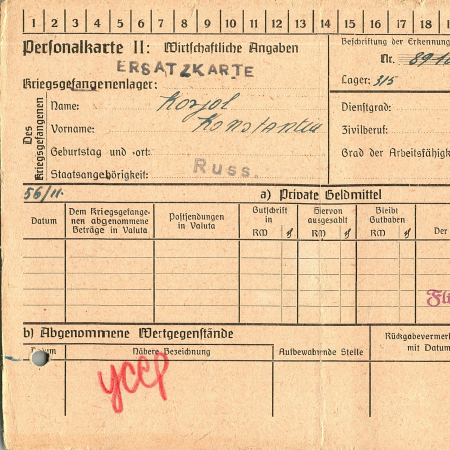 1 2 3 4 5 6 7 8 9 10 11 12 13 14 15 16 17 18
Personalkarte II: Wirtschaftliche Angaben
ERSATZKARTE
Kriegsgefangenenlager:
Des Kriegsgefangenen
Name: Korjol
Vorname: Konstantin
Geburtstag und -ort:
Staatsangehörigkeit: Russ.
Beschriftung der Erkennung
Nr.
Lager: 315
Dienstgrad:
Zivilberuf:
Grad der Arbeitsfähigk
56/II.
a) Private Geldmittel
Datum
Dem Kriegsgefange-
nen abgenommene
Beträge in Valuta
Postsendungen
in Valuta
Gutschrift
in
RM ₰
Hiervon
ausgezahlt
RM ₰
Bleibt
Guthaben
RM ₰
Der
Fl
b) Abgenommene Wertgegenstände
Datum
Nähere Bezeichnung
Aufbewahrende Stelle
Rückgabevermer
mit Datum